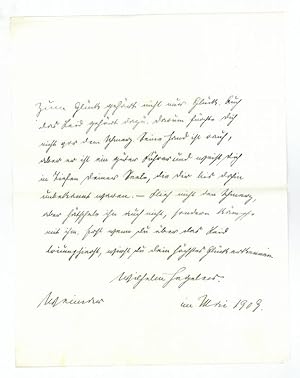 Zum Glück gehört nicht nur Glück. Auch
das Leid gehört dazu. Darum fürchte dich
nicht vor dem Schmerz. Seine Hand ist rauh,
aber er ist ein guter Führer und weist dich
in Tiefen Deiner Seele, die dir bis dahin
unbekannt waren. – Flieh nicht den Schmerz,
aber hätschele ihn auch nicht, sondern kämpfe
mit ihm. Erst wenn du über das Leid
triumphierst, wirst du dein höchstes Glück erkennen.
Wilhelm Hegeler.
Weimar im Mai 1909.